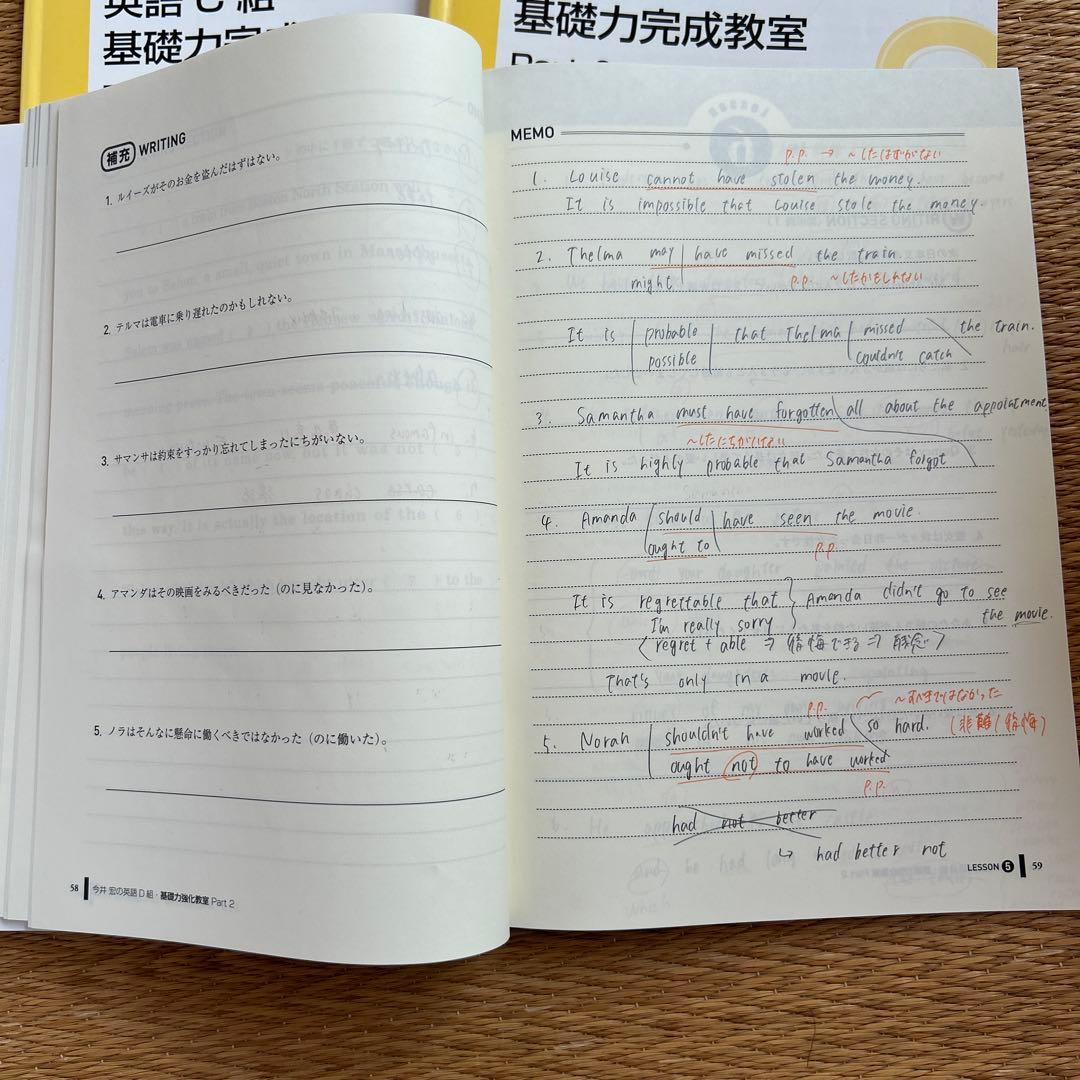 英語C組
基礎力完成
基礎力完成教室
補充 WRITING
1. ルイーズがそのお金を盗んだはずはない。
2. テルマは電車に乗り遅れたのかもしれない。
3. サマンサは約束をすっかり忘れてしまったにちがいない。
4. アマンダはその映画をみるべきだった（のに見なかった）。
5. ノラはそんなに懸命に働くべきではなかった（のに働いた）。
58 今井宏の英語D組・基礎力強化教室 Part 2
MEMO
p.p. → ～したはずがない
1. Louise cannot have stolen the money.
It is impossible that Louise stole the money.
2. Thelma may have missed the train.
might p.p. ～したかもしれない
It is probable that Thelma missed the train.
possible couldn't catch
3. Samantha must have forgotten all about the appointment
～したにちがいない
It is highly probable that Samantha forgot
4. Amanda should have seen the movie.
ought to p.p.
It is regrettable that Amanda didn't go to see
I'm really sorry the movie.
〈regret + able ⇒ 後悔できる ⇒ 残念〉
That's only in a movie.
p.p. ～すべきではなかった
5. Norah shouldn't have worked so hard. (非難/後悔)
ought not to have worked
p.p.
had not better
↳ had better not
LESSON 5 59